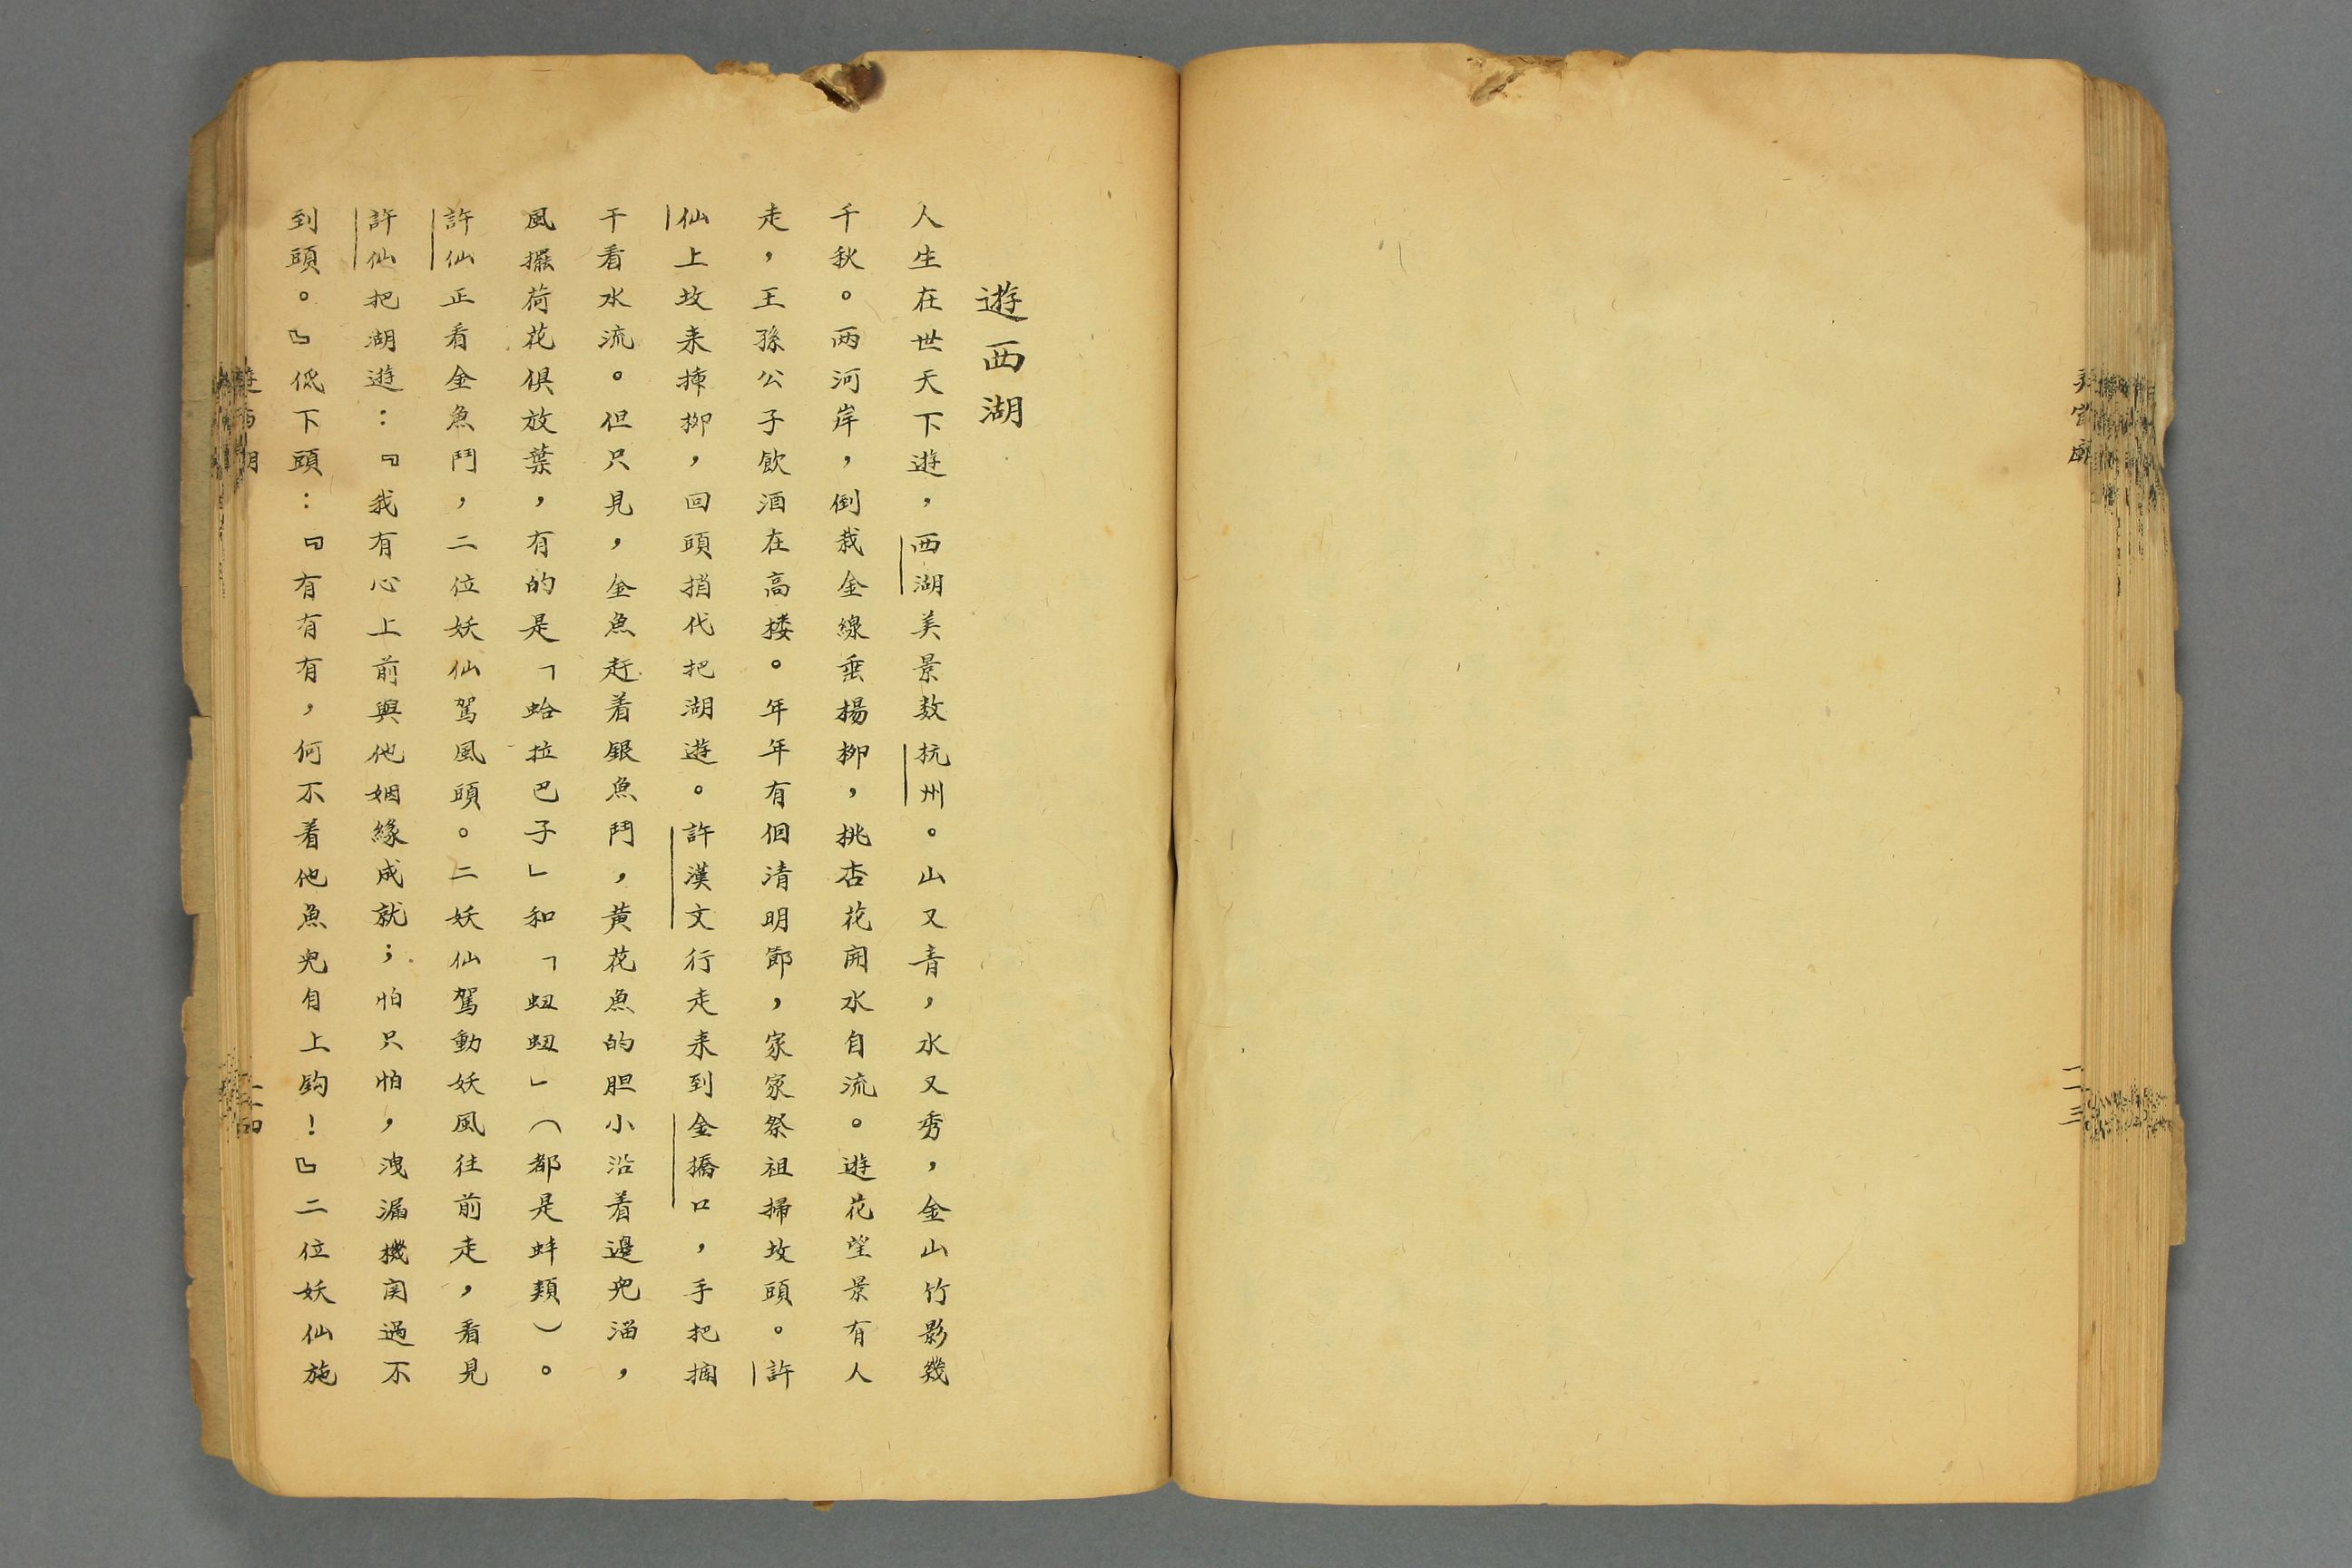 遊西湖
人生在世天下遊，西湖美景数杭州。山又青，水又秀，金山竹影幾
千秋。兩河岸，倒栽金線垂揚柳，挑杏花開水自流。遊花望景有人
走，王孫公子飲酒在高楼。年年有個清明節，家家祭祖掃坟頭。許
仙上坟来揷柳，回頭捎代把湖遊。許漢文行走来到金橋口，手把欄
干看水流。但只見，金魚赶着銀魚鬥，黃花魚的胆小沿着邊兒溜，
風擺荷花俱放葉，有的是「蛤拉巴子」和「蚏蚏」（都是蚌類）。
許仙正看金魚鬥，二位妖仙駕風頭。二妖仙駕動妖風往前走，看見
許仙把湖遊：『我有心上前與他姻緣成就；怕只怕，洩漏機関過不
到頭。』低下頭：『有有有，何不着他魚兒自上鈎！』二位妖仙施